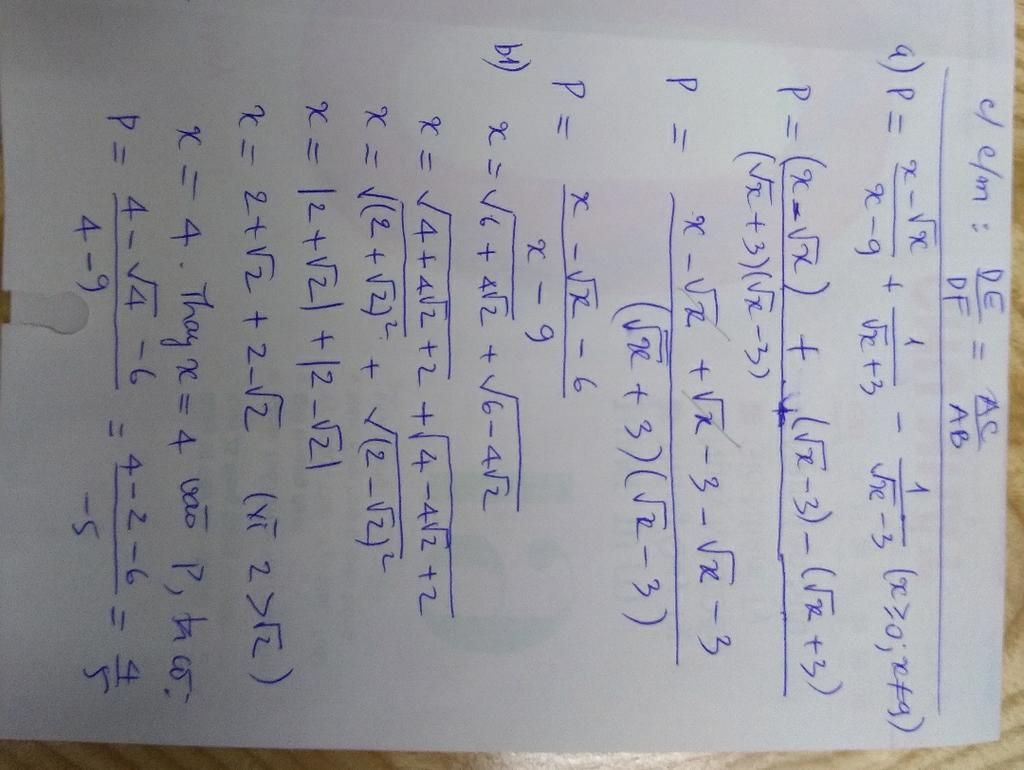 c/ c/m : DE/DF = AC/AB
a) P = (x-√x)/(x-9) + 1/(√x+3) - 1/(√x-3) (x≥0; x≠9)
P = ((x-√x) + (√x-3) - (√x+3))/((√x+3)(√x-3))
P = (x-√x+√x-3-√x-3)/((√x+3)(√x-3))
P = (x-√x-6)/(x-9)
b1) x = √(6+4√2) + √(6-4√2)
x = √(4+4√2+2) + √(4-4√2+2)
x = √((2+√2)²) + √((2-√2)²)
x = |2+√2| + |2-√2|
x = 2+√2 + 2-√2 (vì 2>√2)
x = 4. Thay x=4 vào P, ta có:
P = (4-√4-6)/(4-9) = (4-2-6)/(-5) = 4/5